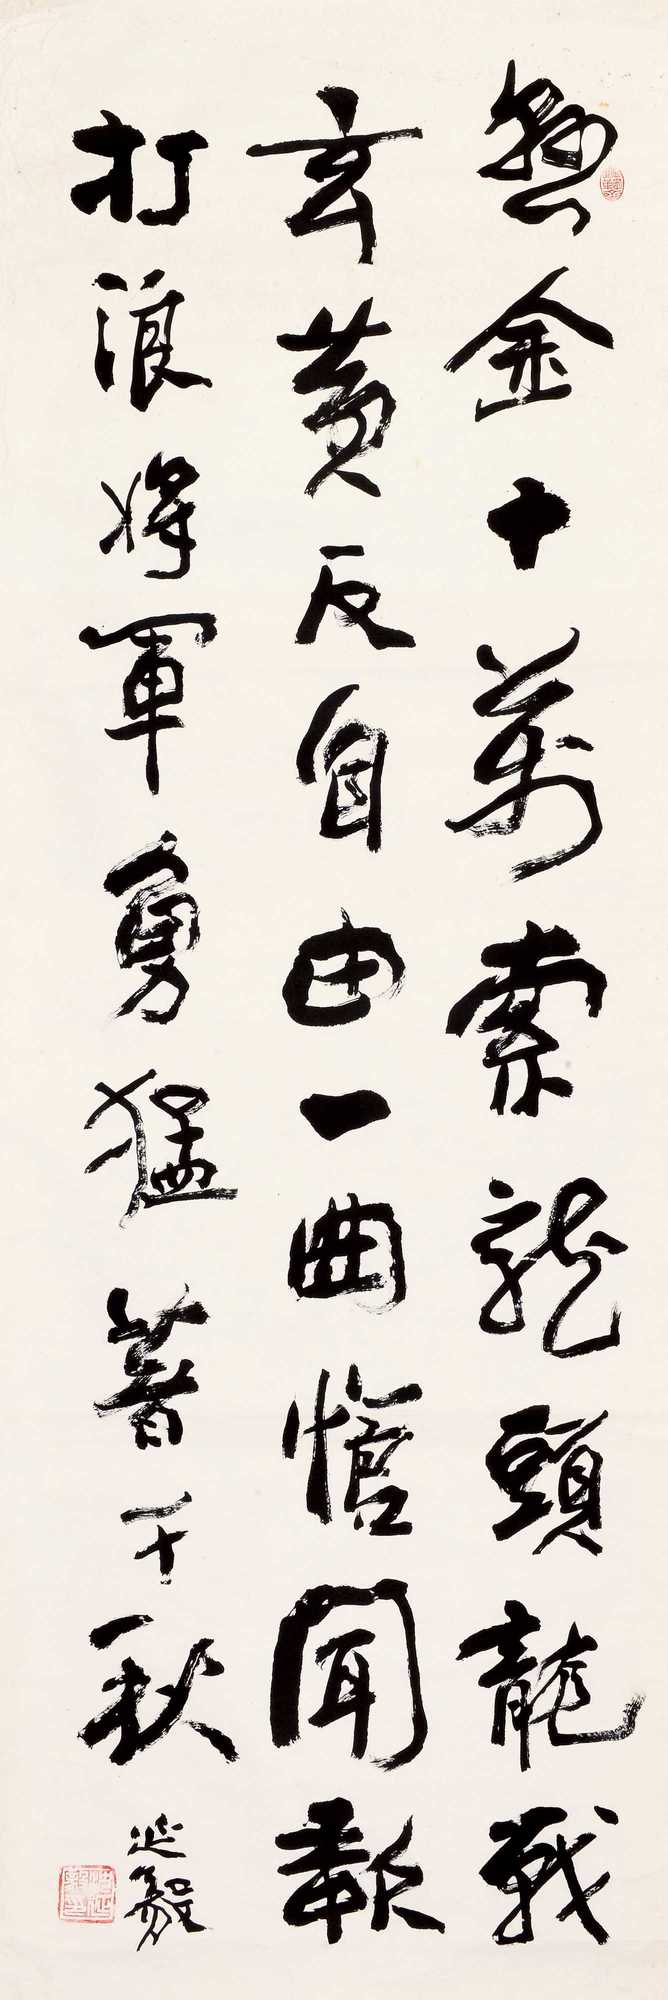 懸金十萬索龍頭龍戰
玄黃反自由一曲慣聞歌
打浪將軍勇猛著千秋
延毅